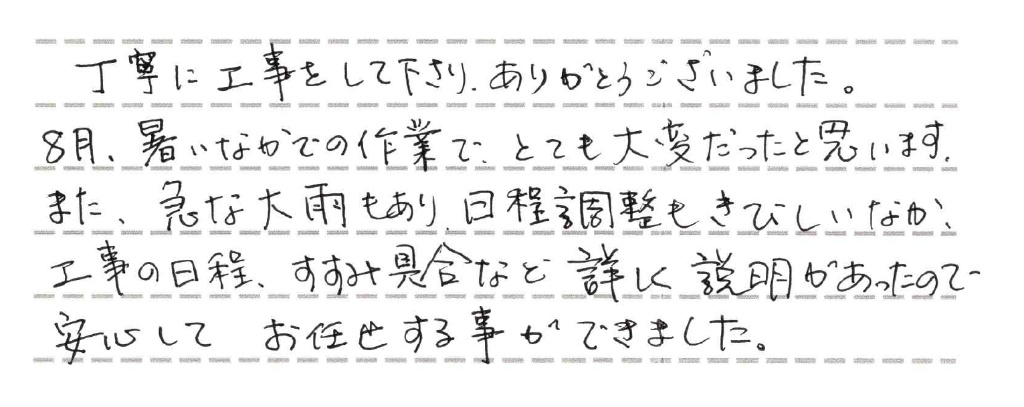 丁寧に工事をして下さり、ありがとうございました。
8月、暑いなかでの作業で、とても大変だったと思います。
また、急な大雨もあり、日程調整もきびしいなか、
工事の日程、すすみ具合など詳しく説明があったので
安心して お任せする事ができました。